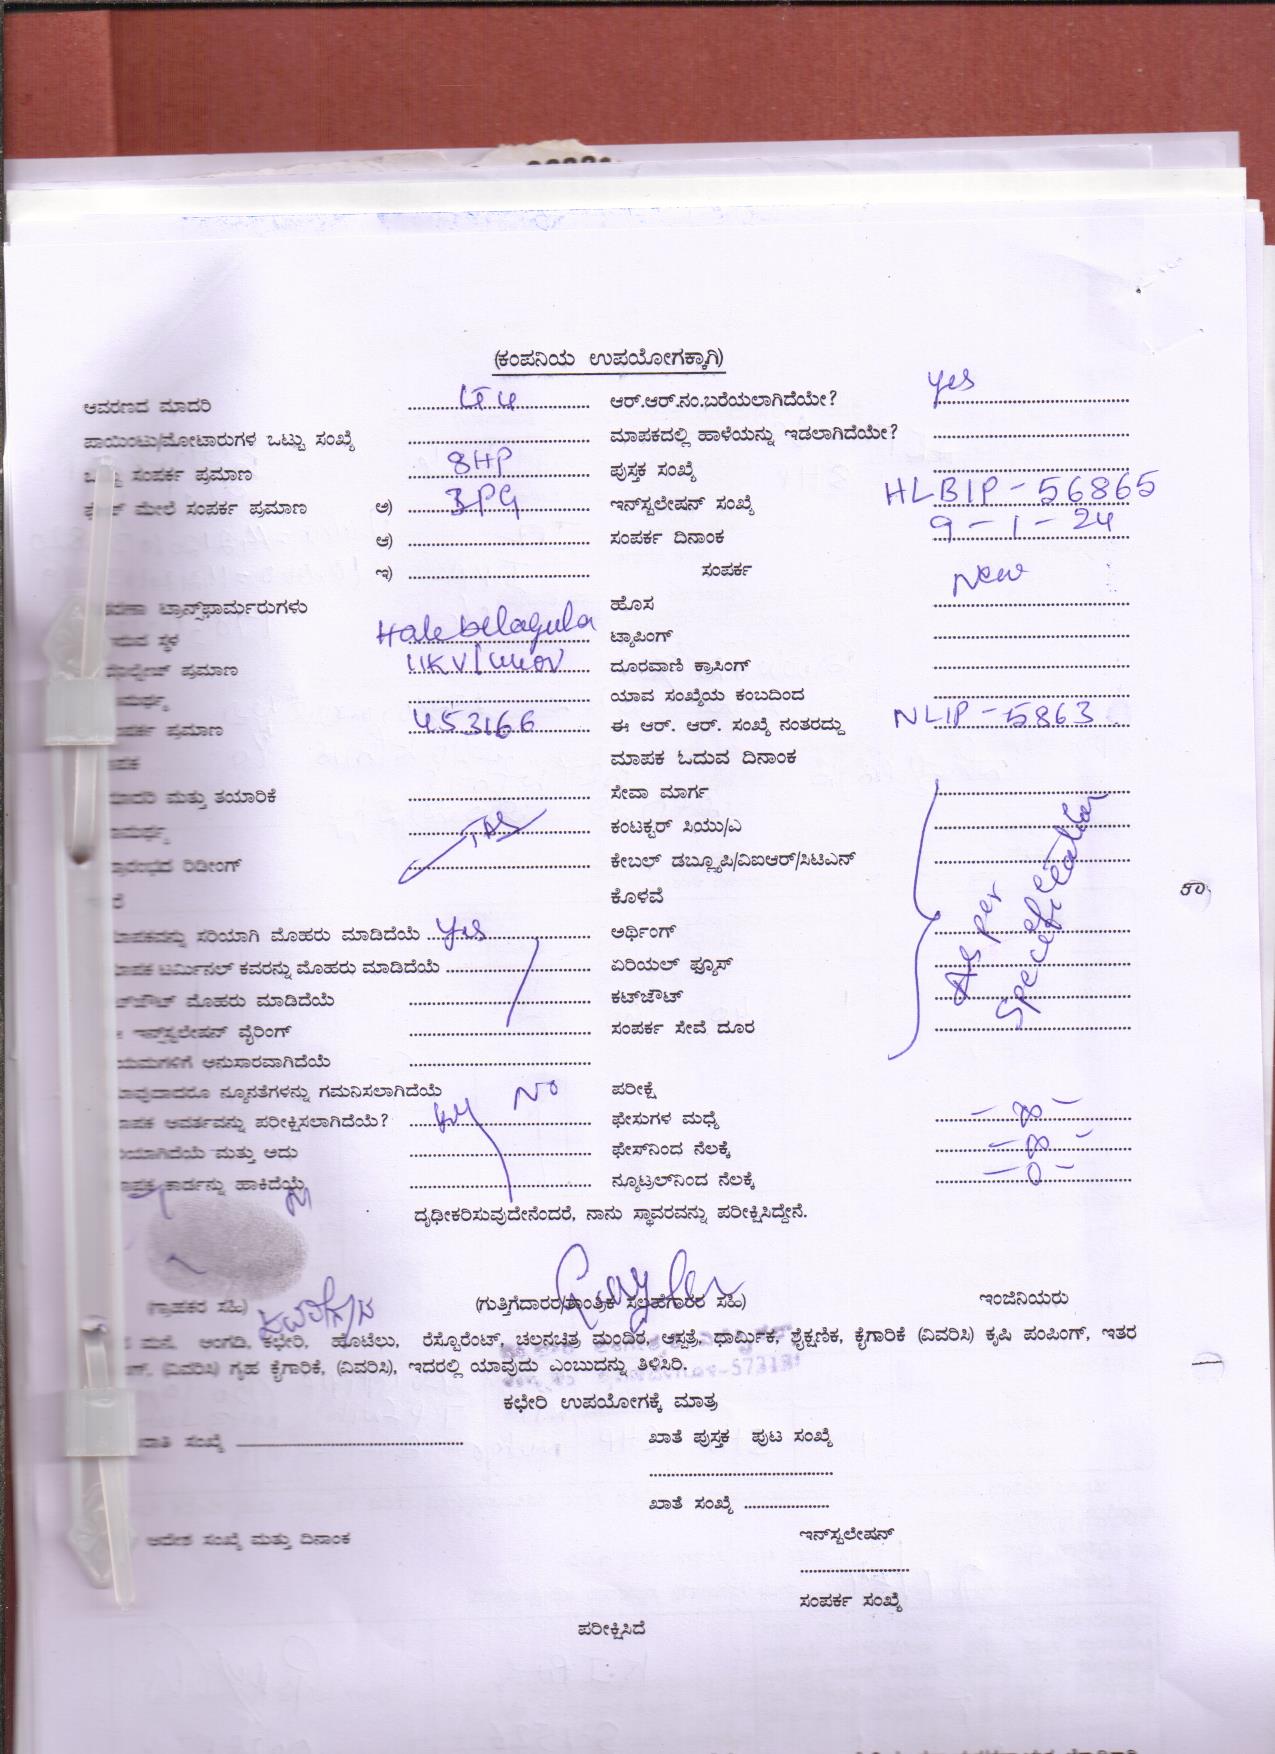 (ಕಂಪನಿಯ ಉಪಯೋಗಕ್ಕಾಗಿ)
ಆವರಣದ ಮಾದರಿ ........ ಆರ್.ಆರ್.ನಂ.ಬರೆಯಲಾಗಿದೆಯೇ? yes
ಪಾಯಿಂಟು/ಮೋಟಾರುಗಳ ಒಟ್ಟು ಸಂಖ್ಯೆ ........ ಮಾಪಕದಲ್ಲಿ ಹಾಳೆಯನ್ನು ಇಡಲಾಗಿದೆಯೇ? ........
ಸಂಪರ್ಕ ಪ್ರಮಾಣ 8HP ಪುಸ್ತಕ ಸಂಖ್ಯೆ ........
ಮೇಲೆ ಸಂಪರ್ಕ ಪ್ರಮಾಣ ಅ) ಇನ್‌ಸ್ಟಲೇಷನ್ ಸಂಖ್ಯೆ HLBIP-56865
ಆ) ........ ಸಂಪರ್ಕ ದಿನಾಂಕ 9-1-24
ಇ) ........ ಸಂಪರ್ಕ
ಟ್ರಾನ್ಸ್‌ಫಾರ್ಮರುಗಳು ಹೊಸ New
ಸ್ಥಳ Halebelagula ಟ್ಯಾಪಿಂಗ್ ........
ಪ್ರಮಾಣ 11KV/440V ದೂರವಾಣಿ ಕ್ರಾಸಿಂಗ್ ........
........ ಯಾವ ಸಂಖ್ಯೆಯ ಕಂಬದಿಂದ ........
ಪ್ರಮಾಣ 453166 ಈ ಆರ್. ಆರ್. ಸಂಖ್ಯೆ ನಂತರದ್ದು NLIP-5863
ಮಾಪಕ ಓದುವ ದಿನಾಂಕ
ಮಾದರಿ ಮತ್ತು ತಯಾರಿಕೆ ........ ಸೇವಾ ಮಾರ್ಗ ........
........ ಕಂಟಕ್ಟರ್ ಸಿಯು/ಎ ........
ರಿಡೀಂಗ್ ........ ಕೇಬಲ್ ಡಬ್ಲ್ಯೂಪಿ/ವಿಐಆರ್/ಸಿಟಿಎನ್ ........
ಕೊಳವೆ As per
ಸರಿಯಾಗಿ ಮೊಹರು ಮಾಡಿದೆಯೆ yes ಅರ್ಥಿಂಗ್ Specification
ಟರ್ಮಿನಲ್ ಕವರನ್ನು ಮೊಹರು ಮಾಡಿದೆಯೆ ........ ಏರಿಯಲ್ ಫ್ಯೂಸ್ ........
ಮೊಹರು ಮಾಡಿದೆಯೆ ........ ಕಟ್‌ಜೌಟ್ ........
ಇನ್‌ಸ್ಟಲೇಷನ್ ವೈರಿಂಗ್ ........ ಸಂಪರ್ಕ ಸೇವೆ ದೂರ ........
ಅನುಸಾರವಾಗಿದೆಯೆ ........
ನ್ಯೂನತೆಗಳನ್ನು ಗಮನಿಸಲಾಗಿದೆಯೆ No ಪರೀಕ್ಷೆ
ಅವರ್ತವನ್ನು ಪರೀಕ್ಷಿಸಲಾಗಿದೆಯೆ? ........ ಫೇಸುಗಳ ಮಧ್ಯೆ - ∞ -
ಮತ್ತು ಅದು ........ ಫೇಸ್‌ನಿಂದ ನೆಲಕ್ಕೆ - ∞ -
ಕಾರ್ಡನ್ನು ಹಾಕಿದೆಯೆ ........ ನ್ಯೂಟ್ರಲ್‌ನಿಂದ ನೆಲಕ್ಕೆ - 0 -
ದೃಢೀಕರಿಸುವುದೇನೆಂದರೆ, ನಾನು ಸ್ಥಾವರವನ್ನು ಪರೀಕ್ಷಿಸಿದ್ದೇನೆ.
(ಗ್ರಾಹಕರ ಸಹಿ) (ಗುತ್ತಿಗೆದಾರರ/ತಾಂತ್ರಿಕ ಸಲಹೆಗಾರರ ಸಹಿ) ಇಂಜಿನಿಯರು
ಮನೆ, ಅಂಗಡಿ, ಕಛೇರಿ, ಹೊಟೆಲು, ರೆಸ್ಟೊರೆಂಟ್, ಚಲನಚಿತ್ರ ಮಂದಿರ, ಆಸ್ಪತ್ರೆ, ಧಾರ್ಮಿಕ, ಶೈಕ್ಷಣಿಕ, ಕೈಗಾರಿಕೆ (ವಿವರಿಸಿ) ಕೃಷಿ ಪಂಪಿಂಗ್, ಇತರ
(ವಿವರಿಸಿ) ಗೃಹ ಕೈಗಾರಿಕೆ, (ವಿವರಿಸಿ), ಇದರಲ್ಲಿ ಯಾವುದು ಎಂಬುದನ್ನು ತಿಳಿಸಿರಿ.
ಕಛೇರಿ ಉಪಯೋಗಕ್ಕೆ ಮಾತ್ರ
ಸಂಖ್ಯೆ ........ ಖಾತೆ ಪುಸ್ತಕ ಪುಟ ಸಂಖ್ಯೆ
........
ಖಾತೆ ಸಂಖ್ಯೆ ........
ಆದೇಶ ಸಂಖ್ಯೆ ಮತ್ತು ದಿನಾಂಕ ಇನ್‌ಸ್ಟಲೇಷನ್
........
ಸಂಪರ್ಕ ಸಂಖ್ಯೆ
ಪರೀಕ್ಷಿಸಿದೆ